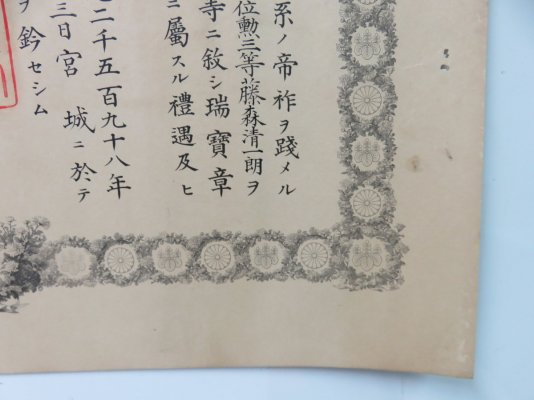 系ノ帝祚ヲ踐メル
位勲三等藤森清一朗ヲ
等ニ敍シ瑞寶章
ニ屬スル禮遇及ヒ
二千五百九十八年
三日宮城ニ於テ
ヲ鈐セシム